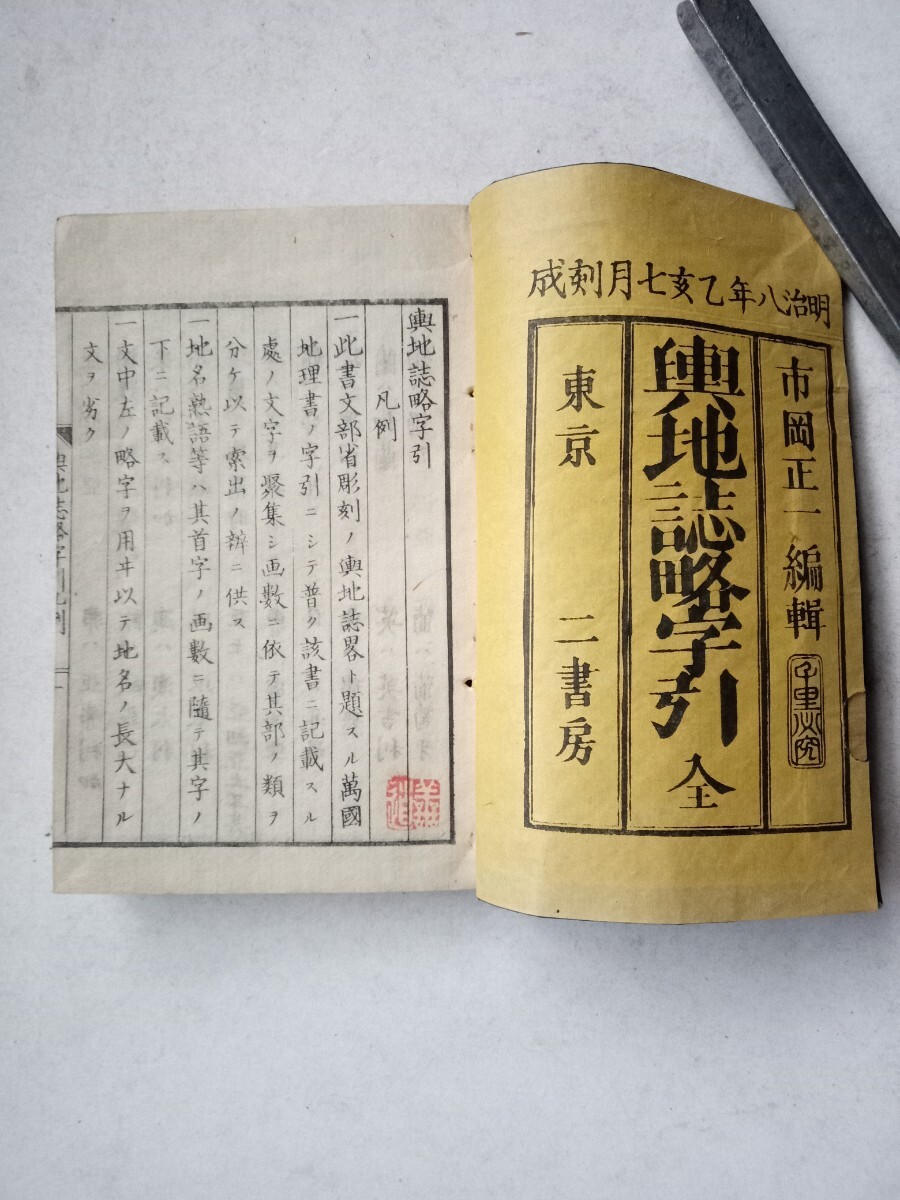 明治八年乙亥七月刻成
市岡正一編輯
輿地誌略字引 全
東京 二書房
輿地誌略字引
凡例
一此書文部省彫刻ノ輿地誌畧ト題スル萬國
地理書ノ字引ニシテ普ク該書ニ記載スル
處ノ文字ヲ聚集シ画數ニ依テ其部ノ類ヲ
分ケ以テ索出ノ辨ニ供ス
一地名熟語等ハ其首字ノ画數ニ隨テ其字ノ
下ニ記載ス
一文中左ノ略字ヲ用ヰ以テ地名ノ長大ナル
文ヲ劣ク
輿地誌略字引凡例 一